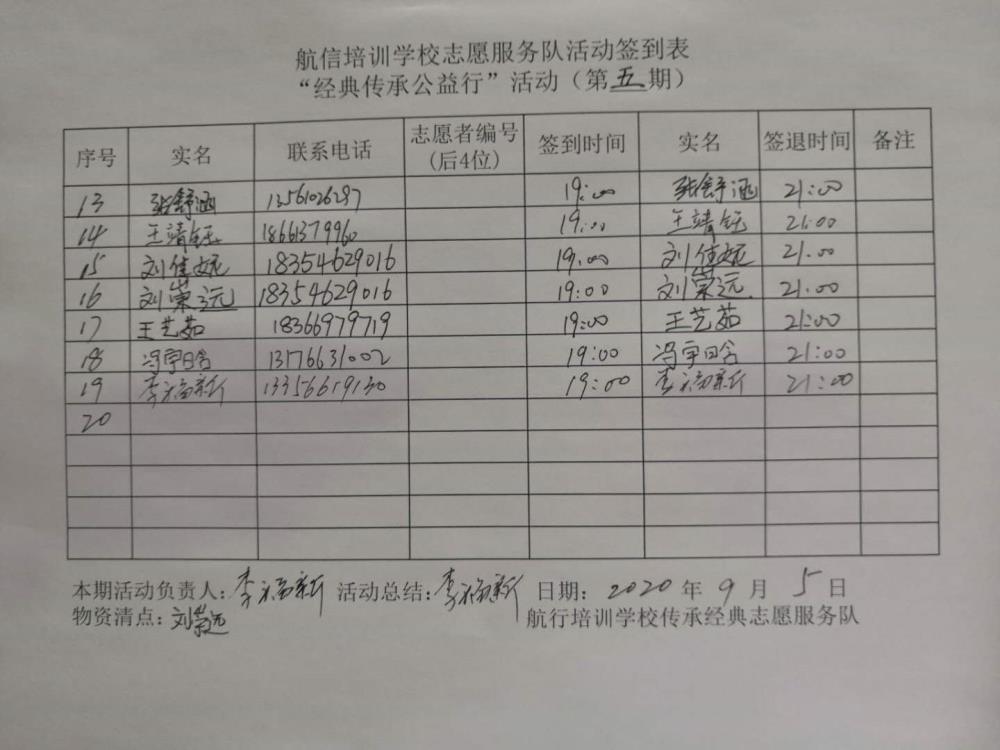 航信培训学校志愿服务队活动签到表
“经典传承公益行”活动（第五期）
序号 实名 联系电话 志愿者编号(后4位) 签到时间 实名 签退时间 备注
13 张舒涵 13561026287 19:00 张舒涵 21:00
14 王靖钰 18661379960 19:00 王靖钰 21:00
15 刘佳妮 18354629016 19:00 刘佳妮 21:00
16 刘崇远 18354629016 19:00 刘崇远 21:00
17 王艺茹 18366979719 19:00 王艺茹 21:00
18 冯宇晗 13176631002 19:00 冯宇晗 21:00
19 李福新 13356619130 19:00 李福新 21:00
20
本期活动负责人：李福新 活动总结：李福新 日期：2020 年 9 月 5 日
物资清点：刘崇远 航行培训学校传承经典志愿服务队